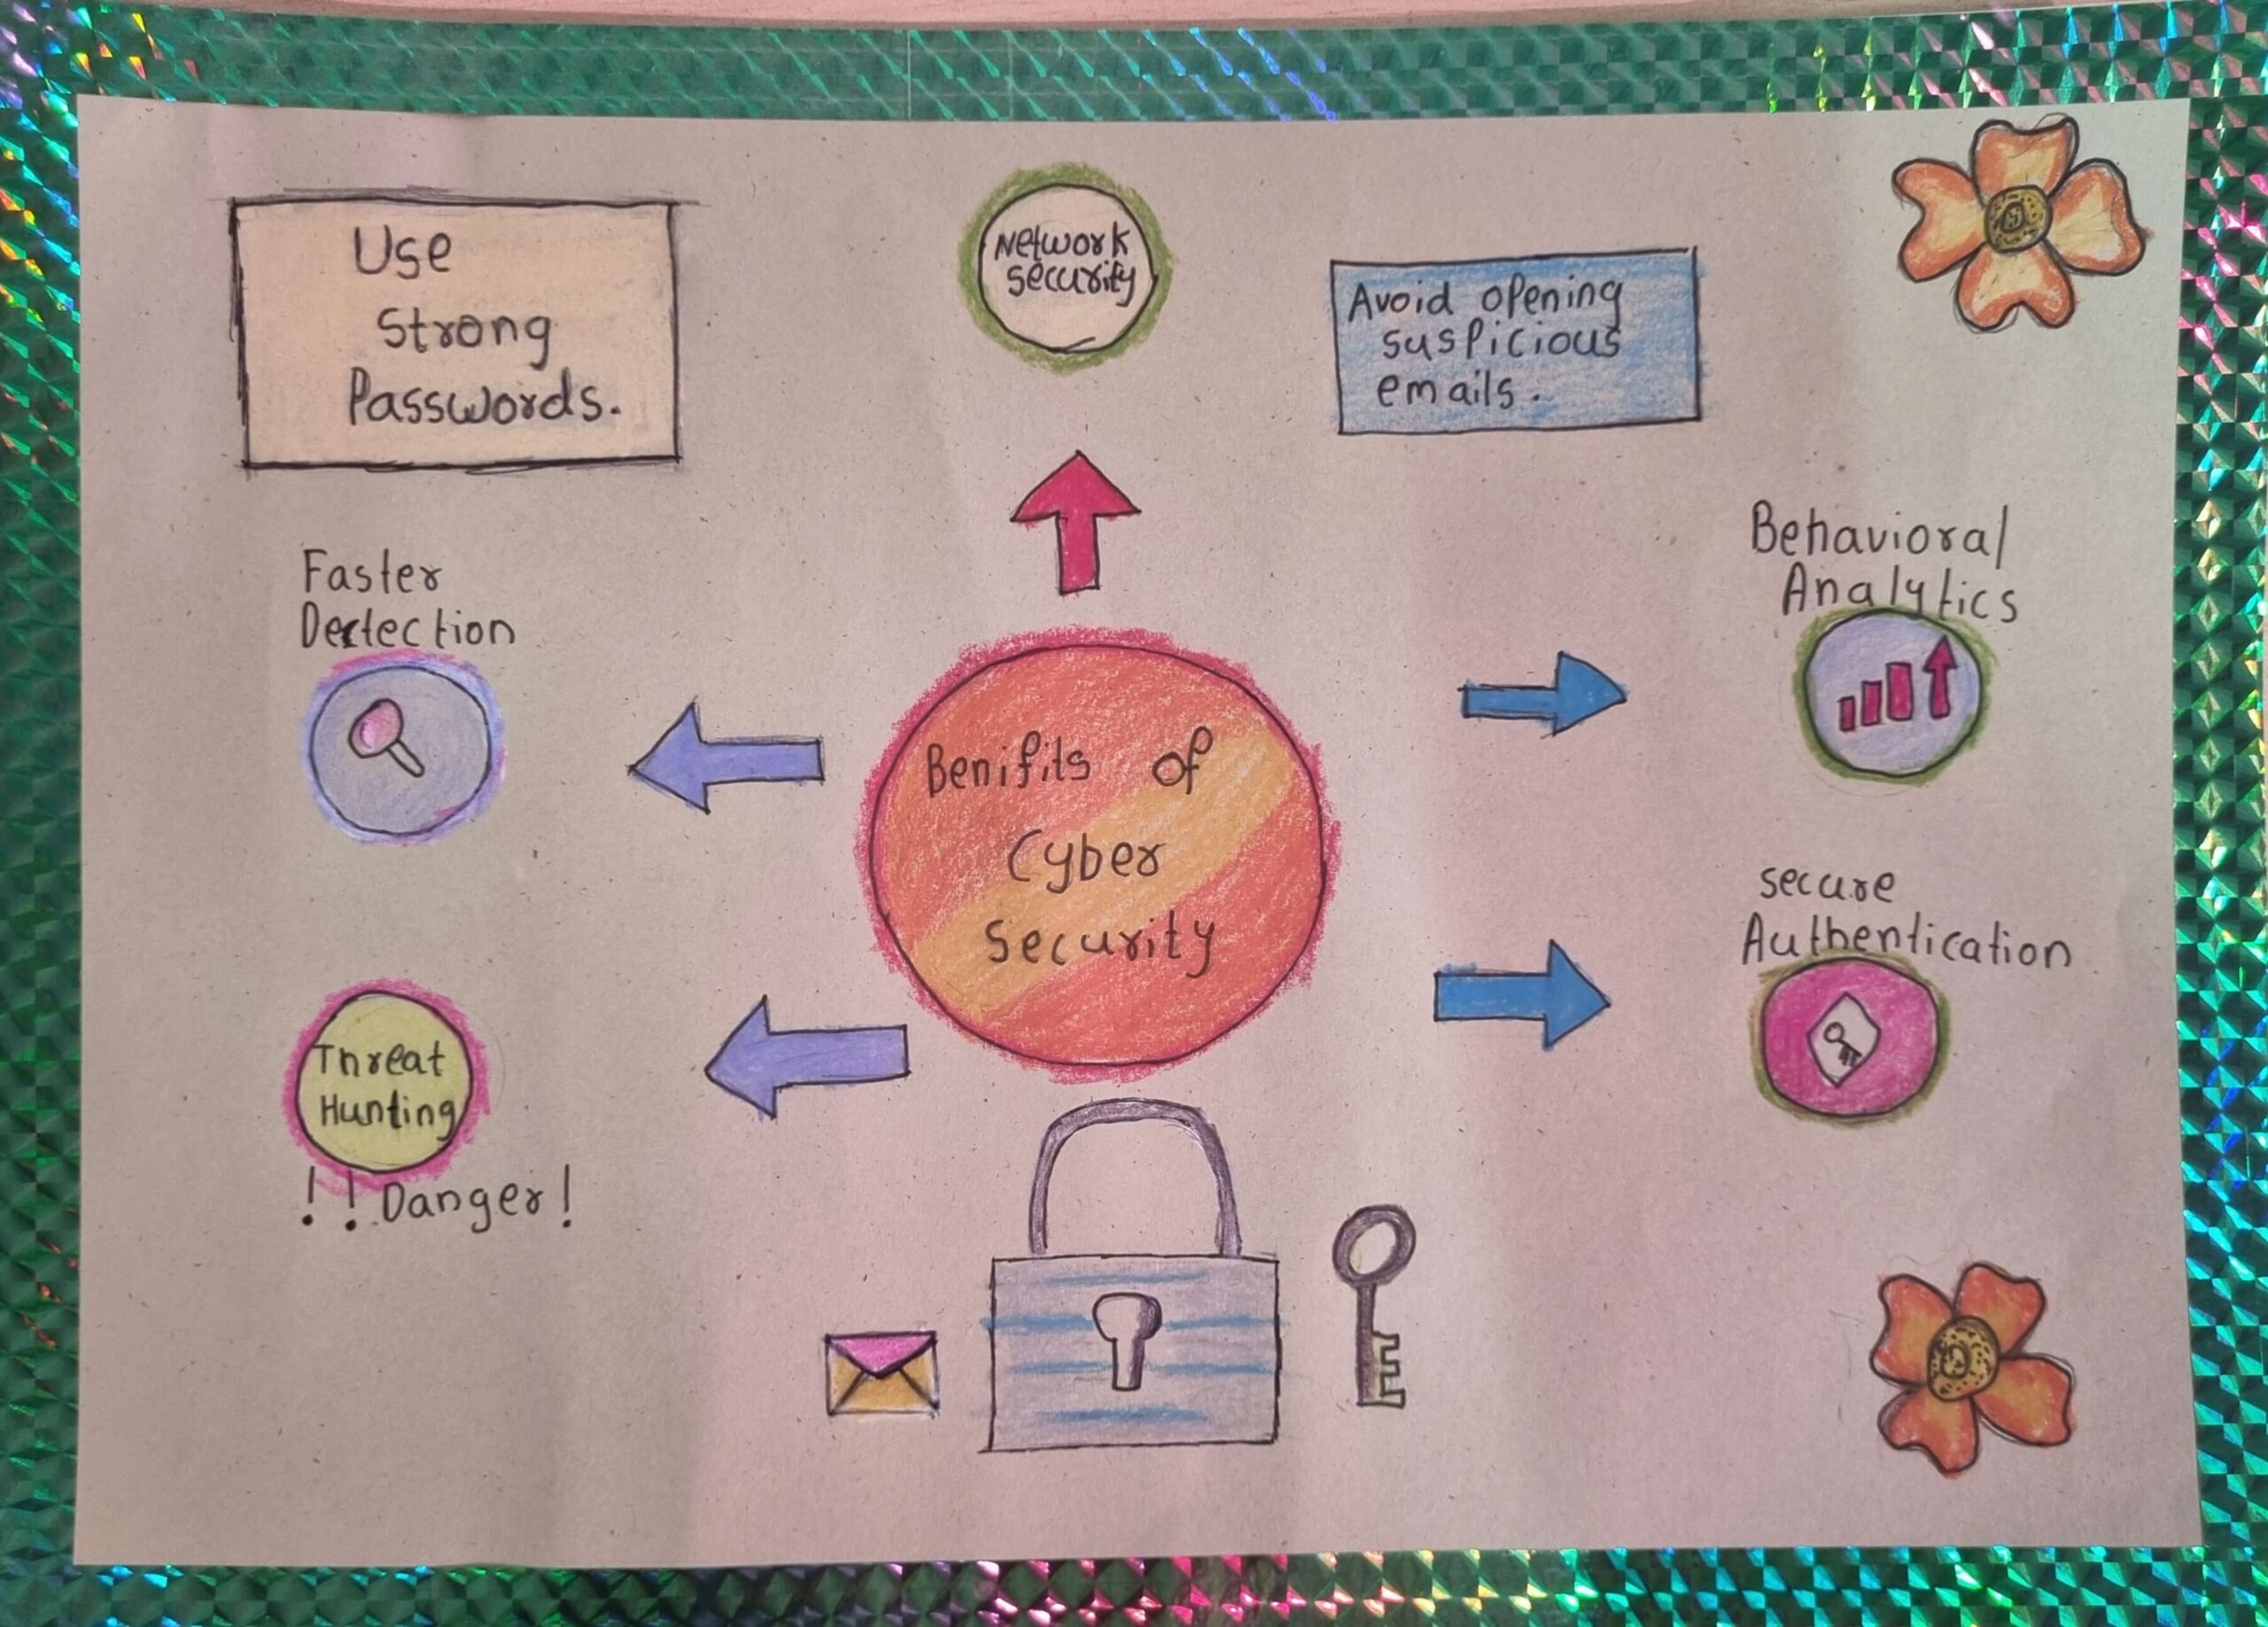 Use
Strong
Passwords.
Network
security
Avoid opening
suspicious
emails.
Faster
Dectection
Behavioral
Analytics
Benifits of
Cyber
Security
secure
Authentication
Threat
Hunting
!! Danger!